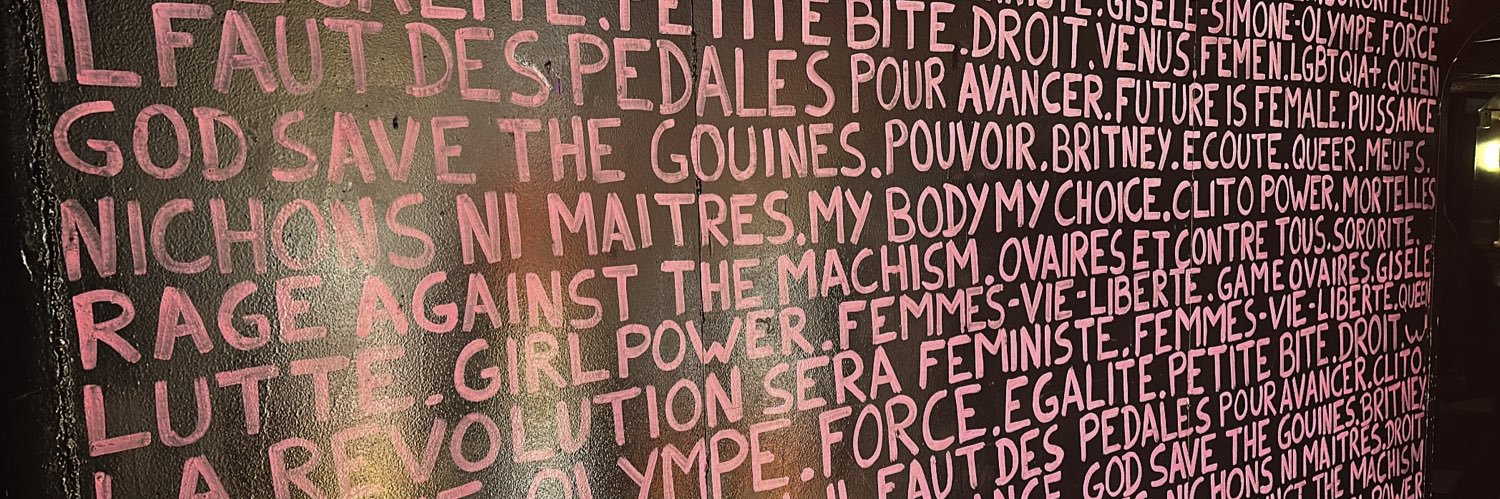 EGALITE.PETITE BITE.DROIT.VENUS.FEMEN.LGBTQIA+.QUEEN
IL FAUT DES PEDALES POUR AVANCER.FUTURE IS FEMALE.PUISSANCE
GOD SAVE THE GOUINES.POUVOIR.BRITNEY.ECOUTE.QUEER.MEUFS.
NICHONS NI MAITRES.MY BODY MY CHOICE.CLITO POWER.MORTELLES
RAGE AGAINST THE MACHISM.OVAIRES ET CONTRE TOUS.SORORITE.
LUTTE.GIRL POWER.FEMMES-VIE-LIBERTE.GAME OVAIRES.GISELE
LA REVOLUTION SERA FEMINISTE.FEMMES-VIE-LIBERTE.QUEEN
OLYMPE.FORCE.EGALITE.PETITE BITE.DROIT.
IL FAUT DES PEDALES POUR AVANCER.CLITO.
GOD SAVE THE GOUINES.BRITNEY
NICHONS NI MAITRES.DROIT
THE MACHISM